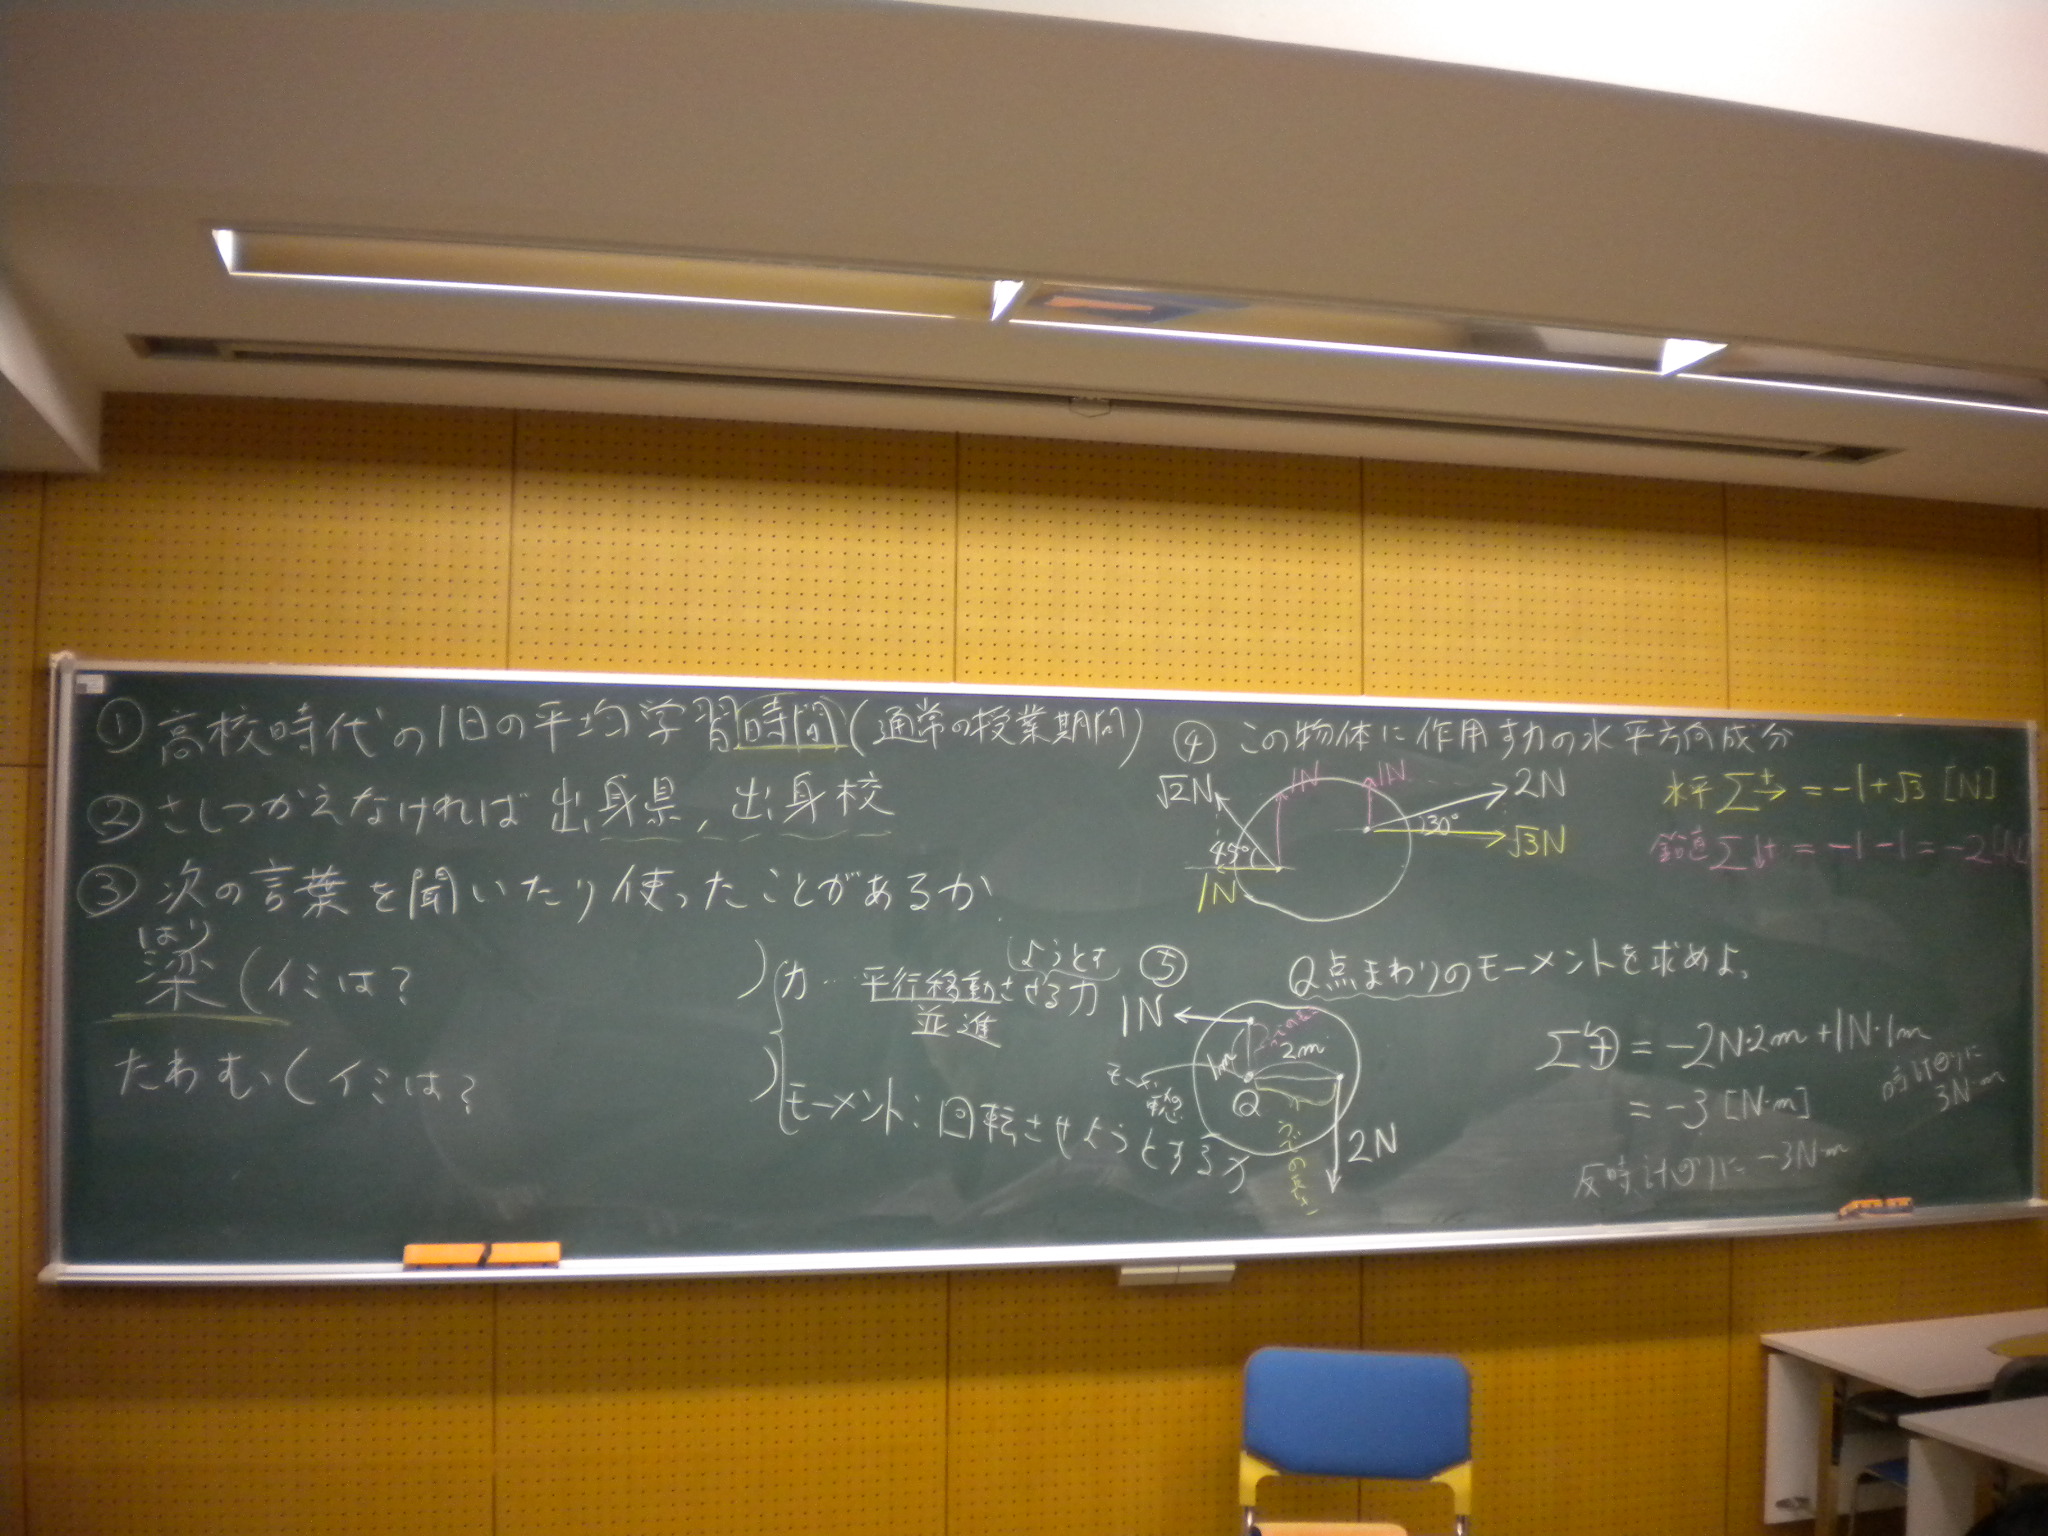 ① 高校時代の1日の平均学習時間(通常の授業期間)
② さしつかえなければ出身県, 出身校
③ 次の言葉を聞いたり使ったことがあるか.
はり
梁 (イミは? )
たわむ (イミは? )
力… 平行移動させる力
ようとす
並進
モーメント: 回転させようとする力
④ この物体に作用す力の水平方向成分
√2N
1N
1N
2N
30°
√3N
45°
1N
水平 Σ→+ = -1+√3 [N]
鉛直 Σ↓+ = -1-1 = -2[N]
⑤ Q点まわりのモーメントを求めよ.
1N
1m
2m
Q
うでの長さ
2N
Σ = -2N·2m + 1N·1m
= -3 [N·m]
時計回りに
3N·m
反時計回りに -3N·m